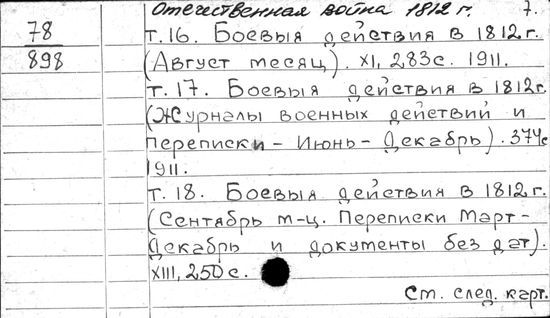 Отечественная война 1812 г. 7.
78
898
т.16. Боевыя действия в 1812 г.
(Август месяц). XI, 283 с. 1911.
т.17. Боевыя действия в 1812 г.
(Журналы военных действий и
переписки - Июнь - Декабрь). 374 с
1911.
т.18. Боевыя действия в 1812 г.
(Сентябрь м-ц. Переписки Март -
Декабрь и документы без дат).
XIII, 250 с.
См. след. карт.